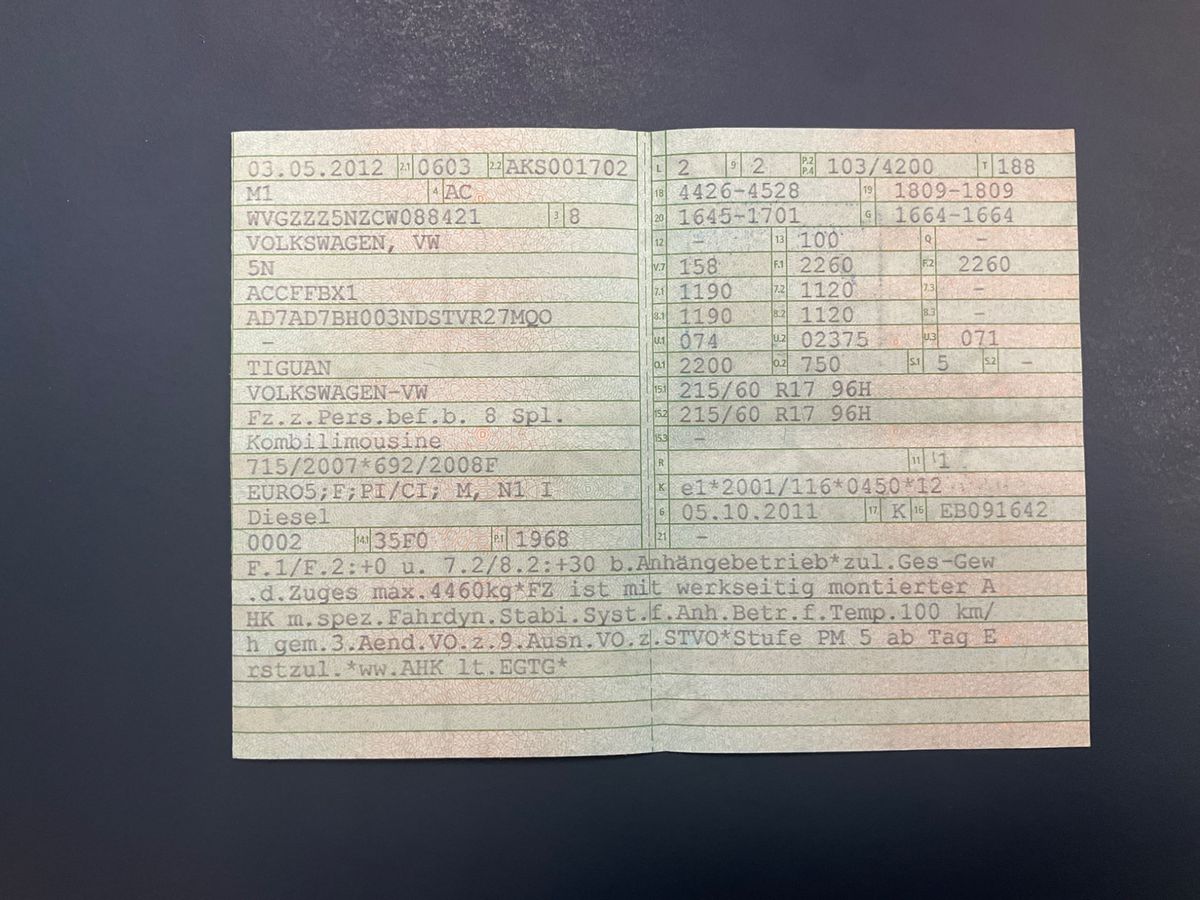 03.05.2012 2.1 0603 2.2 AKS001702
M1 4 AC
WVGZZZ5NZCW088421 3 8
VOLKSWAGEN, VW
5N
ACCFFBX1
AD7AD7BH003NDSTVR27MQO
–
TIGUAN
VOLKSWAGEN-VW
Fz.z.Pers.bef.b. 8 Spl.
Kombilimousine
715/2007*692/2008F
EURO5;F;PI/CI; M, N1 I
Diesel
0002 14.1 35F0 P.1 1968
L 2 9 2 P.2 P.4 103/4200 T 188
18 4426-4528 19 1809-1809
20 1645-1701 G 1664-1664
12 – 13 100 Q –
V.7 158 F.1 2260 F.2 2260
7.1 1190 7.2 1120 7.3 –
8.1 1190 8.2 1120 8.3 –
U.1 074 U.2 02375 U.3 071
O.1 2200 O.2 750 S.1 5 S.2 –
15.1 215/60 R17 96H
15.2 215/60 R17 96H
15.3 –
R 11 1
K e1*2001/116*0450*12
6 05.10.2011 17 K 16 EB091642
21 –
F.1/F.2:+0 u. 7.2/8.2:+30 b.Anhängebetrieb*zul.Ges-Gew
.d.Zuges max.4460kg*FZ ist mit werkseitig montierter A
HK m.spez.Fahrdyn.Stabi.Syst.f.Anh.Betr.f.Temp.100 km/
h gem.3.Aend.VO.z.9.Ausn.VO.z.STVO*Stufe PM 5 ab Tag E
rstzul.*ww.AHK lt.EGTG*